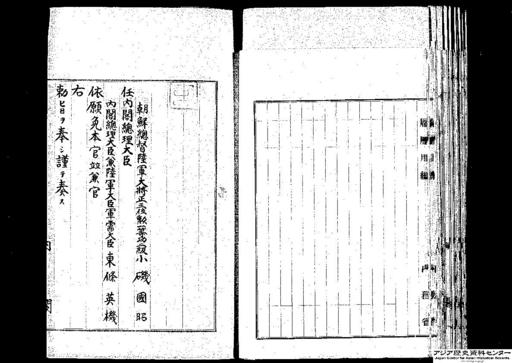 朝鮮總督陸軍大將正三位勲一等功二級小磯國昭
任內閣總理大臣
內閣總理大臣兼陸軍大臣軍需大臣東條英機
依願免本官竝兼官
右
勅旨ヲ奏シ謹テ奏ス
內閣
內務省
アジア歴史資料センター
Japan Center for Asian Historical Records